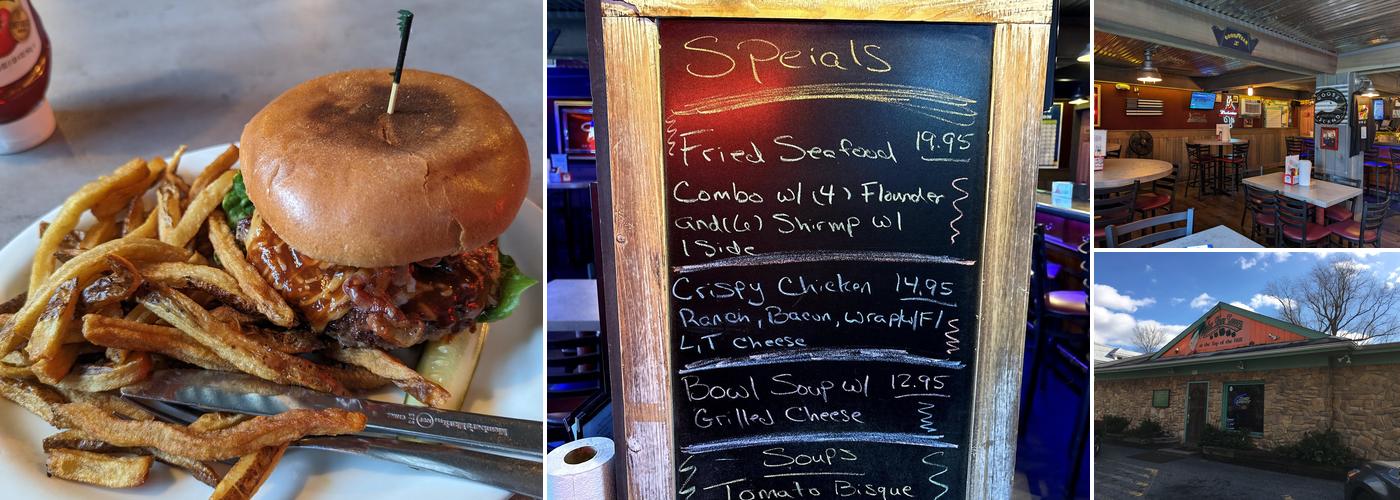 Speials
Fried Seafood 19.95
Combo w/ (4) Flounder
and (6) Shirmp w/
1 Side
Crispy Chicken 14.95
Ranch, Bacon, wrap w/F/
L,T cheese
Bowl Soup w/ 12.95
Grilled Cheese
Soups
Tomato Bisque
at the Top of the Hill